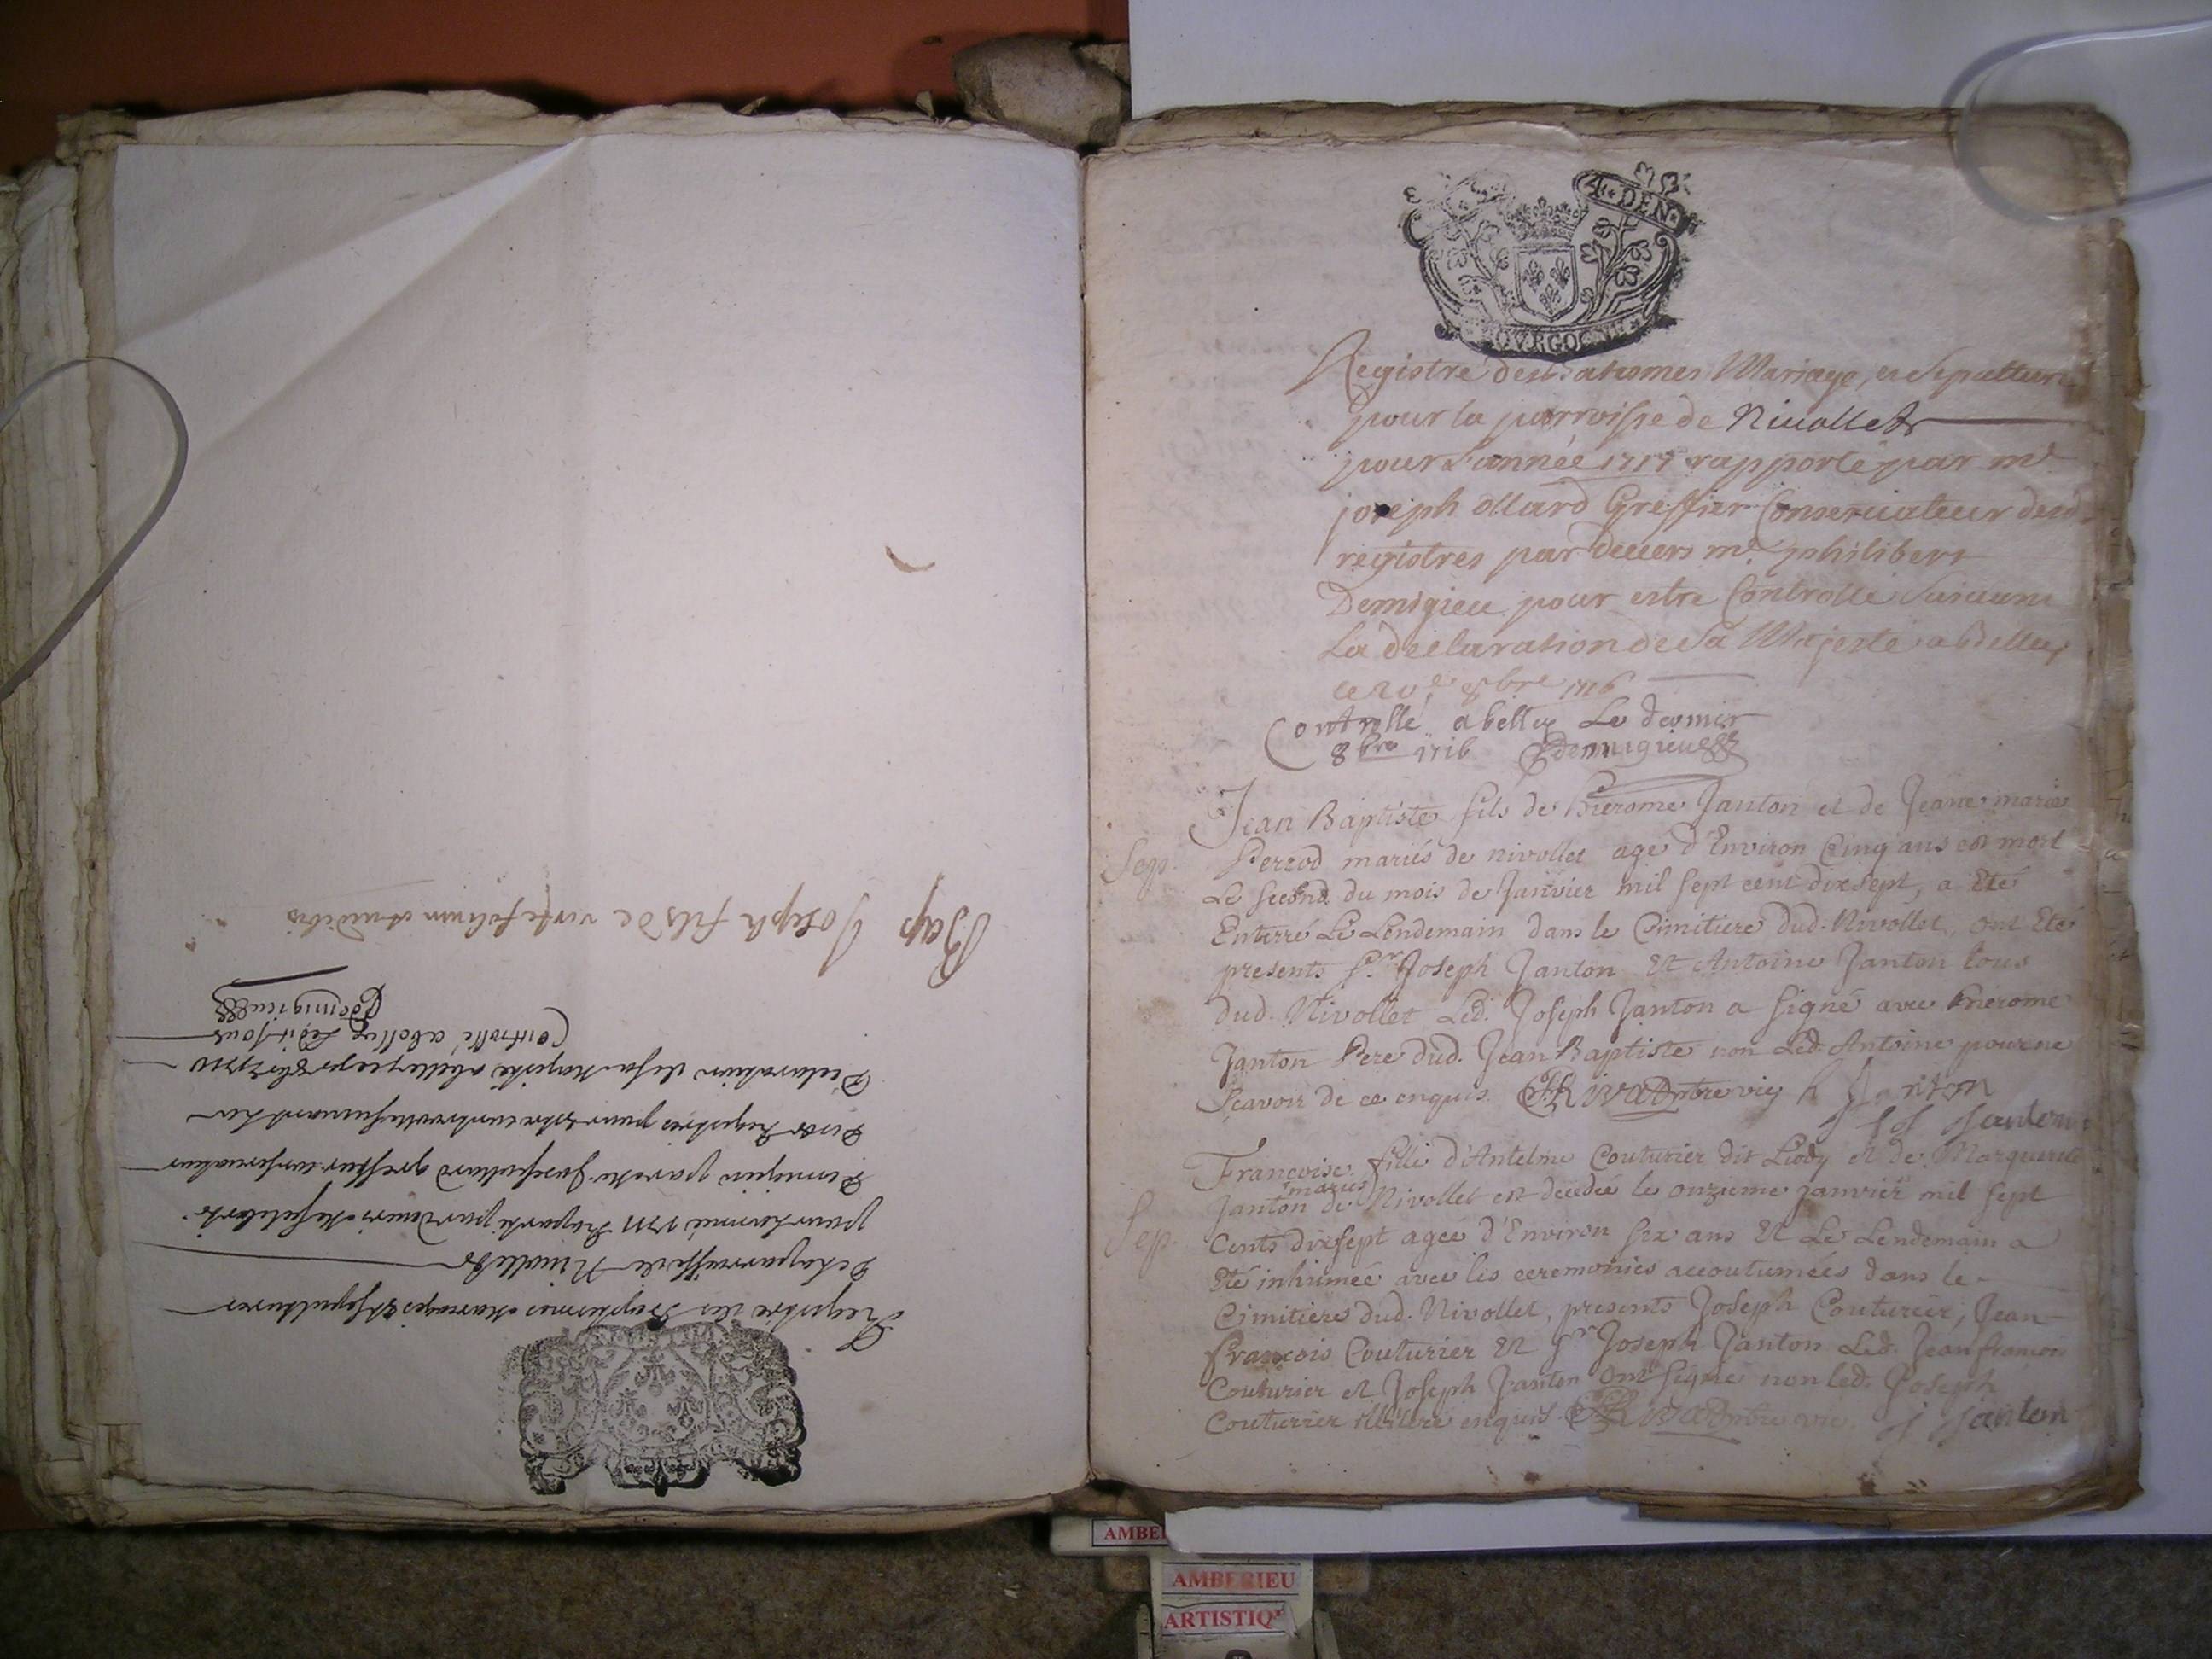 Registre des Baptesmes Mariages & sepultures
De la parroisse de Nivollet
pour l'année 1711 Raporté par devers Me philibert
Demigieu par Me Joseph ollard greffier conservateur
Desd Registres pour estre controllé suivant la
Declaration de sa Majesté a belley ce 8bre 1710
Controllé a belley Ledit Jour
Demigieu
Bap Joseph fils de verte folium audibis
4 DEN
BOVRGOGNE
Registre des Batesmes Mariage, et Sepulture
pour la parroisse de Nivollet
pour L'année 1717 rapporté par me
joseph ollard Greffier Conservateur desd
registres par devers me philibert
Demigieu pour estre Controllé Suivant
La declaration de Sa Majesté a belley
ce 20e 8bre 1716
Controllé a belley Le dernier
8bre 1716 Demigieu
Jean Baptiste fils de Hierome Janton et de Jeane marie
Sep. Perrod mariés de nivollet agé d'Environ Cinq ans est mort
Le second du mois de Janvier mil sept cent dixsept, a Eté
Enterré Le Lendemain dans le Cimitiere dud. Nivollet, ont Eté
presents Sr. Joseph Janton Et Antoine Janton tous
dud. Nivollet Led. Joseph Janton a signé avec hierome
Janton Pere dud. Jean Baptiste non Led. Antoine pour ne
scavoir de ce enquis. h Janton
J Janton
Francoise fille d'Antelme Couturier dit Liody et de Marguerite
Janton mariés de Nivollet est decedée le onzieme janvier mil sept
Sep. Cents dixsept agée d'Environ six ans Et Le Lendemain a
Eté inhumée avec les ceremonies accoutumées dans le
Cimitiere dud. Nivollet, presents Joseph Couturier, Jean
francois Couturier Et Sr Joseph Janton Led. Jean francois
Couturier et Joseph Janton ont signé non led. Joseph
Couturier illiteré enquis. J Janton
AMBE
AMBERIEU
ARTISTIQ